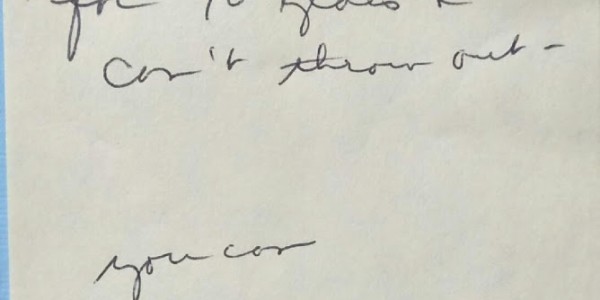 for 70 years &
Can't throw out -
you can